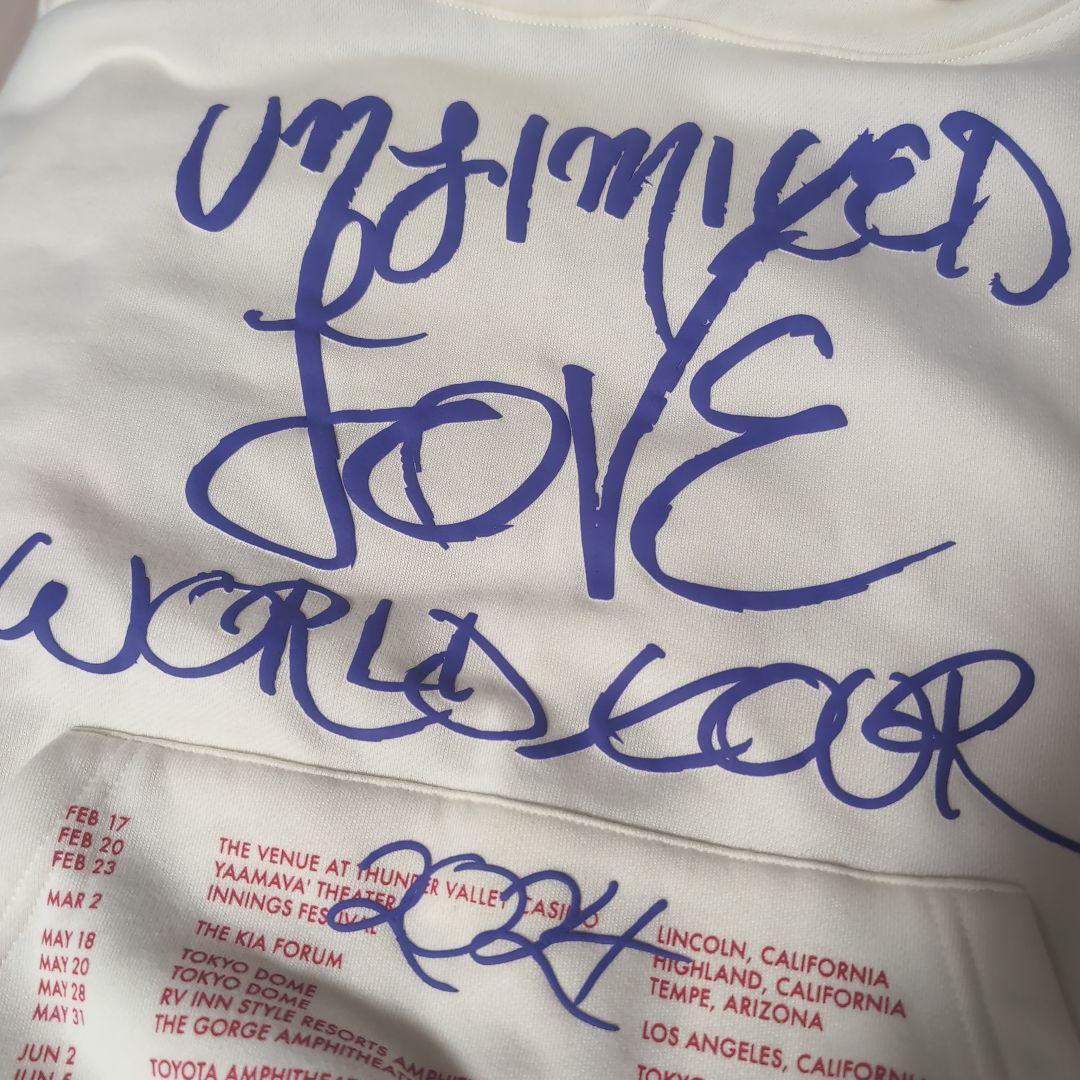 UNLIMITED
LOVE
WORLD TOUR
2024
FEB 17 THE VENUE AT THUNDER VALLEY CASINO LINCOLN, CALIFORNIA
FEB 20 YAAMAVA' THEATER HIGHLAND, CALIFORNIA
FEB 23 INNINGS FESTIVAL TEMPE, ARIZONA
MAR 2 THE KIA FORUM LOS ANGELES, CALIFORNIA
MAY 18 TOKYO DOME TOKYO
MAY 20 TOKYO DOME
MAY 28 RV INN STYLE RESORTS
MAY 31 THE GORGE AMPHITHEATRE
JUN 2 TOYOTA